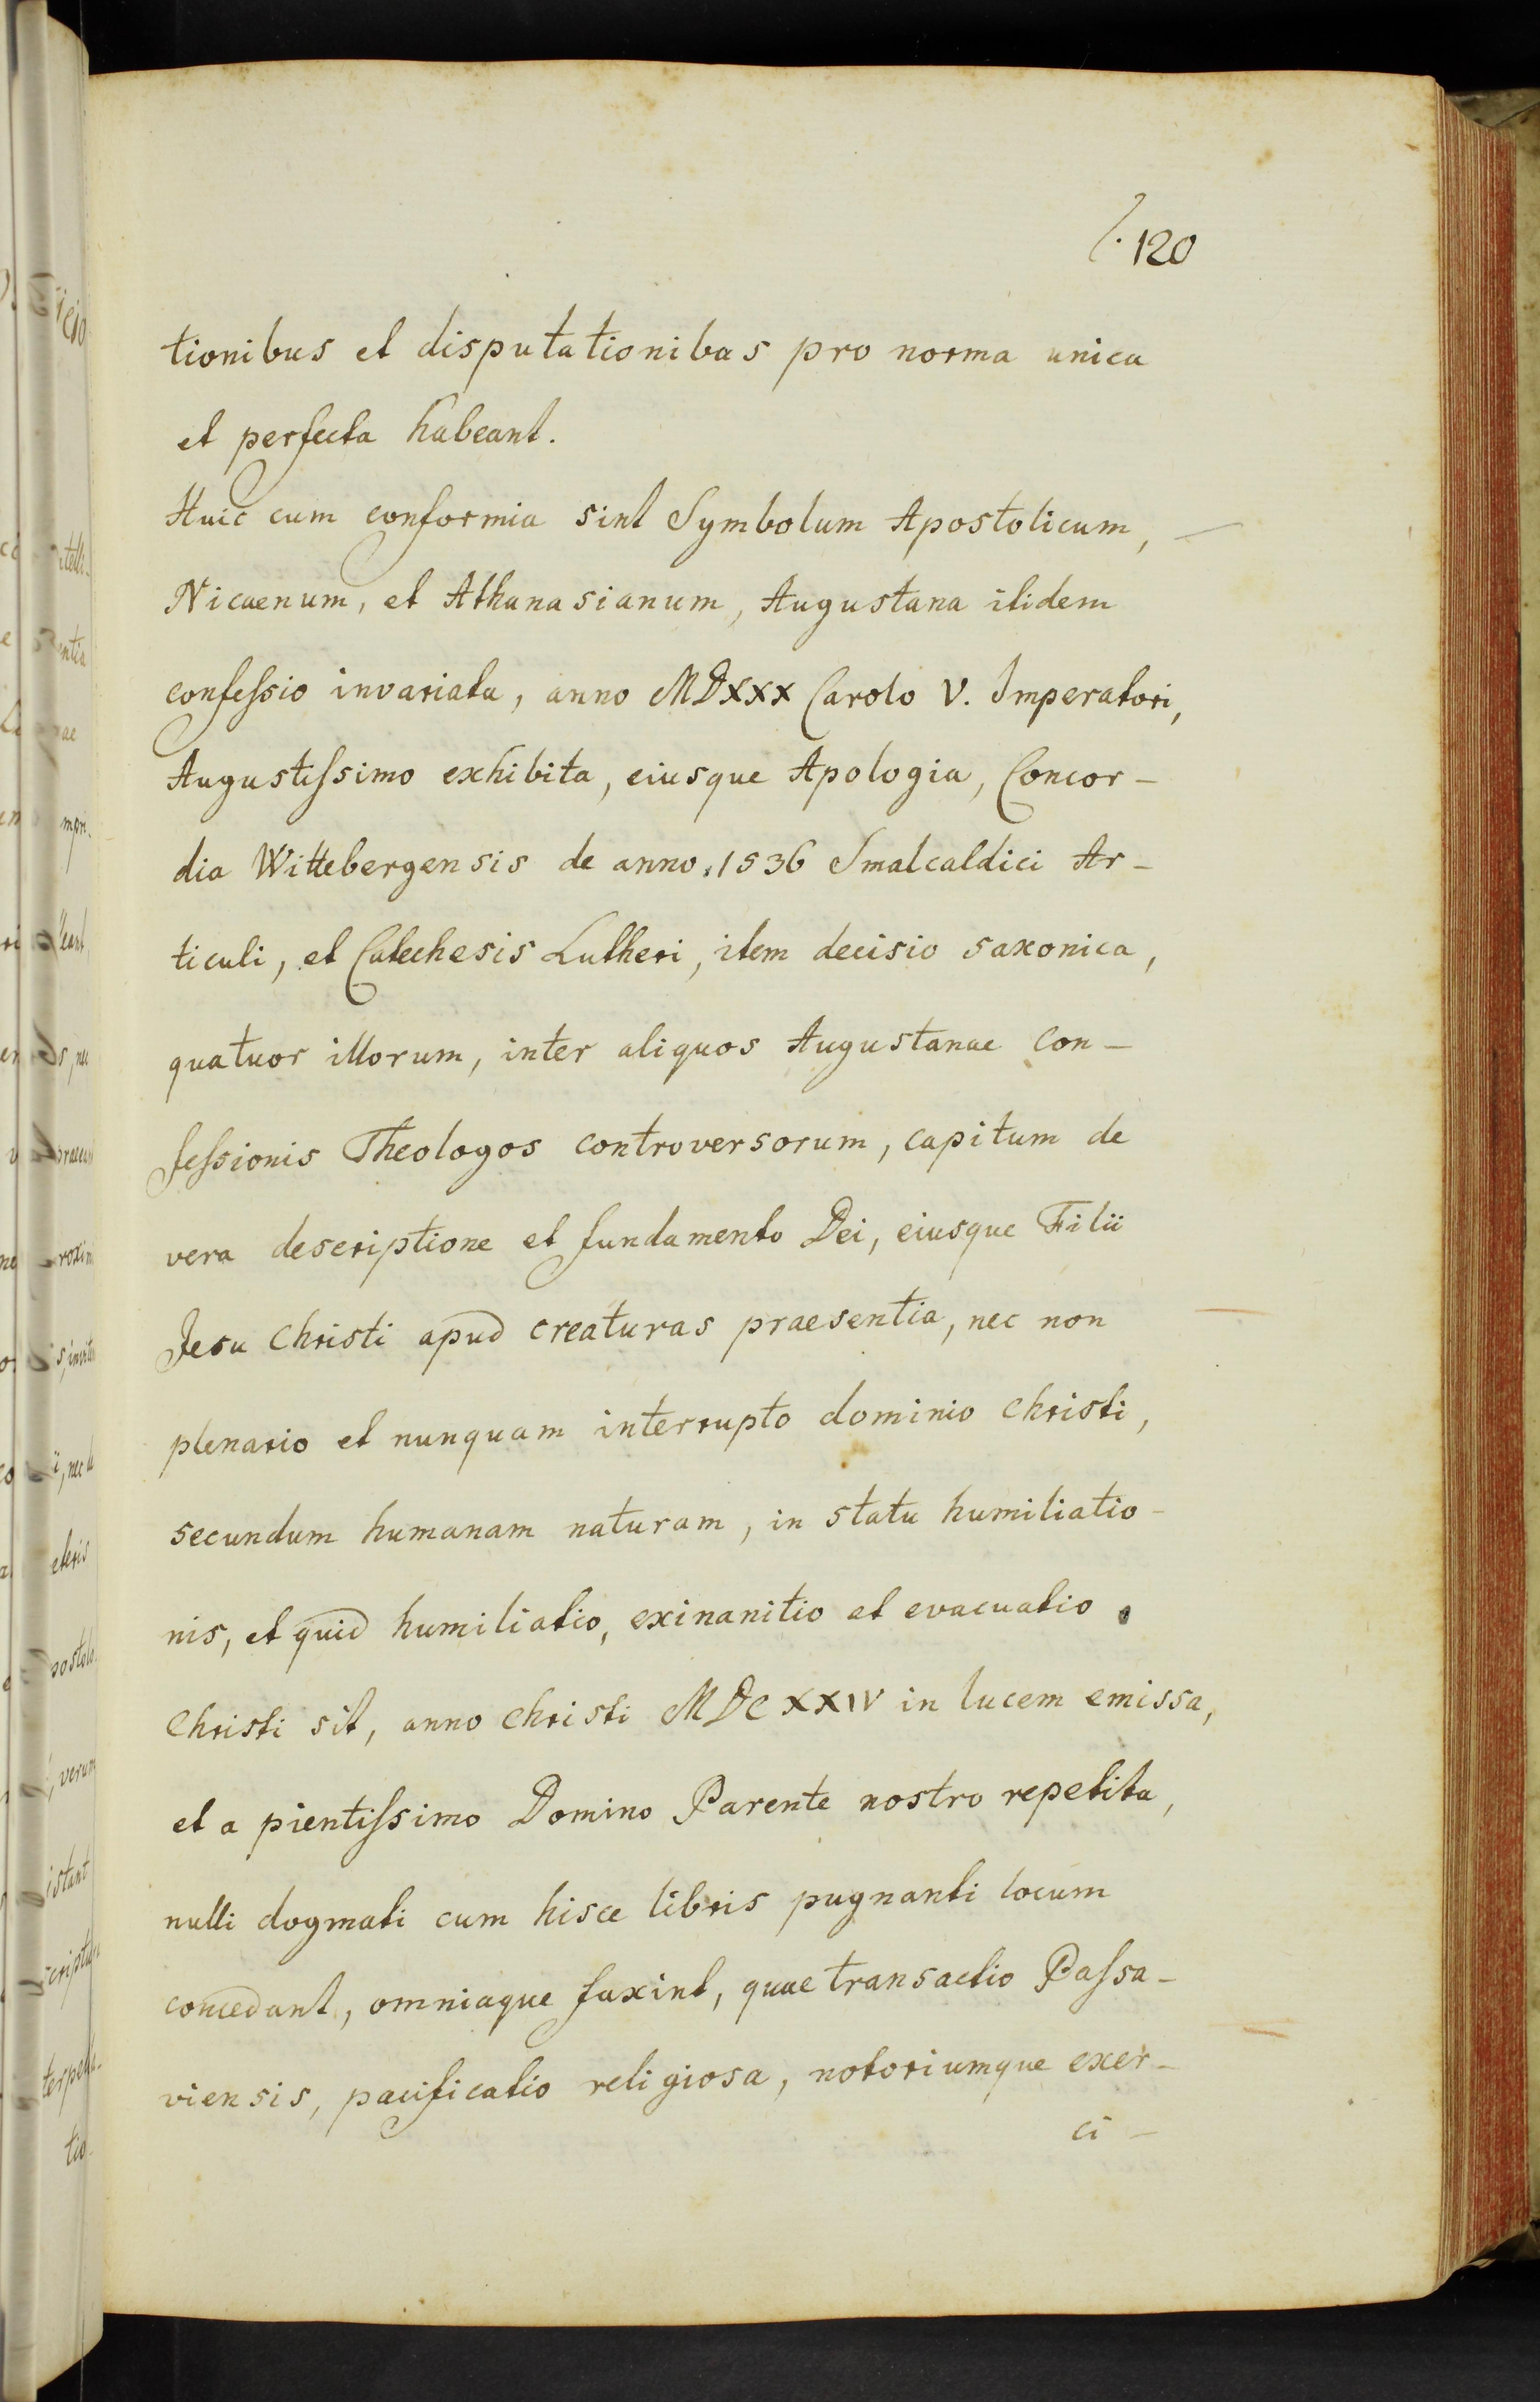 120
tionibus et disputationibus pro norma unica
et perfecta habeant.
Huic cum conformia sint Symbolum Apostolicum,
Nicaenum, et Athanasianum, Augustana itidem
confeſsio invariata, anno MDXXX Carolo V. Imperatori,
Augustiſsimo exhibita, eiusque Apologia, Concor-
dia Wittebergensis de anno 1536 Smalcaldici Ar-
ticuli, et Catechesis Lutheri, item decisio saxonica,
quatuor illorum, inter aliquos Augustanae Con-
feſsionis Theologos controversorum, capitum de
vera descriptione et fundamento Dei, eiusque Filii
Jesu Christi apud creaturas praesentia, nec non
plenario et nunquam interrupto dominio Christi,
secundum humanam naturam, in statu humiliatio-
nis, et quid humiliatio, exinanitio et evacuatio
Christi sit, anno Christi MDCXXIV in lucem emissa,
et a pientiſsimo Domino Parente nostro repetita,
nulli dogmati cum hisce libris pugnanti locum
concedant, omniaque faxint, quae transactio Paſsa-
viensis, pacificatio religiosa, notoriumque exer-
ci-